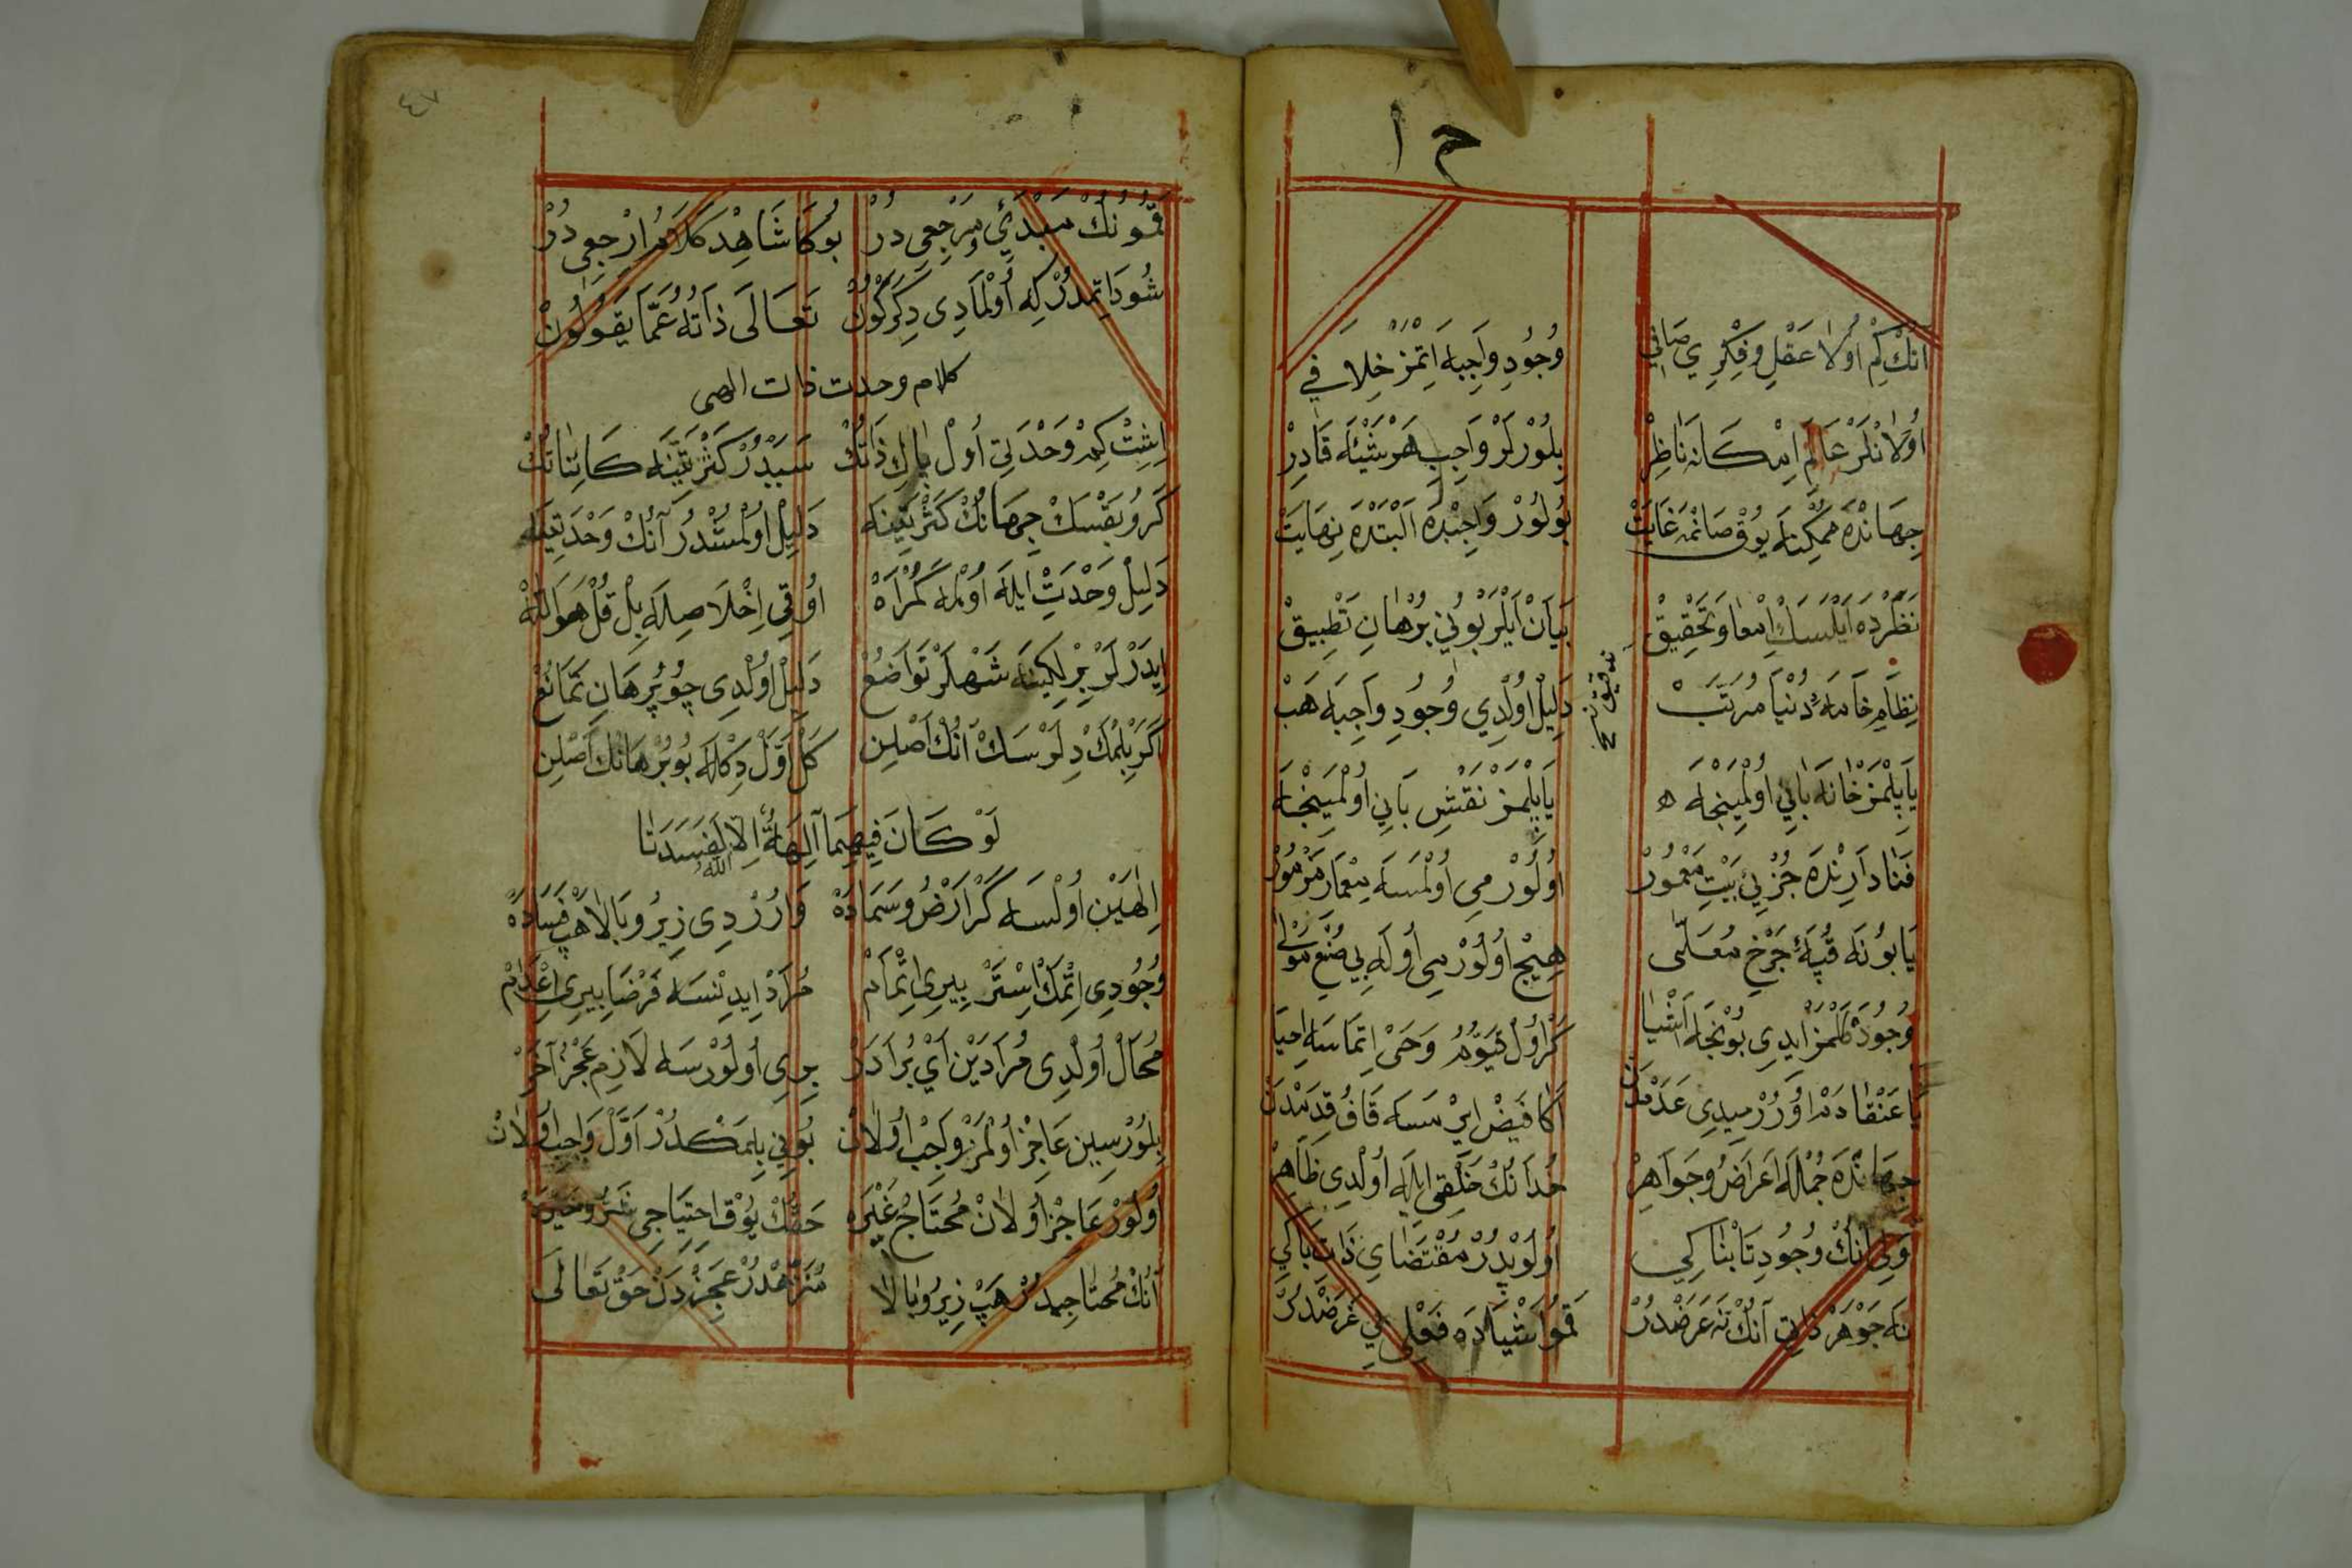 ح ا
اَنُكْ كِمْ اُولَا عَقْلِ و فِكْرِي صَافِي وُجُودِ وَاجِبَه اِتْمَزْ خِلَافِي
اُولَانْلَرْ عَالَمِ اِمْكَانَه نَاظِرْ بِلُوْرْلَرْ وَاجِبِ هَرْ شَيْئَه قَادِرْ
جِهَانْدَه مُمْكِنَه يُوقْ صَانْمَه غَايَتْ بُولُوْرْ وَاجِبْدَه اَلْبَتْدَه نِهَايَتْ
نَظَرْدَه اَيْلَسَكْ اِمْعَا وَ تَحْقِيقْ بَيَانْ اَيْلَرْ بُونِي بُرْهَانِ تَطْبِيقْ
نِظَامِ خَامَهٔ دُنْيَا مُرَتَّبْ دَلِيلْ اُولْدِي وُجُودِ وَاجِبَه هَبْ
يَاپِلْمَزْ خَانَه بَانِي اُولْمَيِنْجَه يَاپِلْمَزْ نَقْشِ بَانِي اُولْمَيِنْجَه
فَنَا دَارِنْدَه جُزْئِي بَيْتِ مَعْمُورْ اُولُورْ مِي اُولْمَسَه مِعْمَارْ مَزْمُورْ
يَا بُونَه قُبَّهٔ چَرْخِ مُعَلَّى هِيچْ اُولُورْمِي اُولَه بِي صُنْعِ مَوْلَى
وُجُودَه كَلْمَزْ اِيدِي بُونْجَه اَشْيَا كَرْ اُولْ قَيُّومُ وَحَيْ اِتْمَاسَه اِحْيَا
يَا عَنْقَا دَمْ اُورُرْمِيدِي عَدَمْدَنْ اَكَا فَيْضْ اِيرْمَسَه قَافِ قِدَمْدَنْ
جِهَانْدَه جُمْلَه اَعْرَاضُ وجَوَاهِرْ خُدَانُكْ خَلْقِي اِيلَه اُولْدِي ظَاهِرْ
وَلِي اَنُكْ وُجُودِ تَابْنَاكِي اُولُوبْدُرْ مُقْتَضَايِ ذَاتِ پَاكِي
نَه جَوْهَرْ ذَاتِ اَنُكْ نَه عَرَضْدُرْ قَمُو اَشْيَادَه فِعْلِي بِي غَرَضْدُرْ
٤٧
قَمُونُكْ مَبْدَئِي و مَرْجِعِي دُرْ بُوكَا شَاهِدْ كَلَامِ اِرْجِعِي دُرْ
شُودَ اِتْمَدُرْ كِه اُولْمَادِي دِكَرْكُونْ تَعَالَى ذَاتُهُ عَمَّا يَقُولُونْ
كلام وحدت ذات الهى
اِشِتْ كِمْ وَحْدَتِي اُولْ پَاكِ ذَاتُكْ سَبَبْدُرْ كَثْرَتِينَه كَائِنَاتُكْ
كَرُو بَقْسَكْ جِهَانُكْ كَثْرَتِينَه دَلِيلْ اُولْمُشْدُرْ آنُكْ وَحْدَتِينَه
دَلِيلِ وَحْدَتْ اَيْلَه اُولْمَه كُمْرَاهْ اُوقِي اِخْلَاصِلَه بِلْ قُلْ هُوَ اللهْ
اِيدَرْلَرْ بِرْلِكِينَه شَهْلَرْ تَوَاضُعْ دَلِيلْ اُولْدِي چُو بُرْهَانِ تَمَانُعْ
اَكَرْ بِلْمَكْ دِلَرْسَكْ آنُكْ اَصْلِنْ كَلْ اَوَّلْ دِكْلَه بُو بُرْهَانُكْ اَصْلِنْ
لَوْ كَانَ فِيهِمَا آلِهَةٌ اِلَّا اللهُ لَفَسَدَتَا
اِلٰهَيْنْ اُولْسَه كَرْ اَرْضُ و سَمَادَه وَارُرْدِي زِيرُ و بَالَا هَپْ فَسَادَه
وُجُودِي اِتْمَكْ اِسْتَرْ بِيرِي اِتْمَامْ مُرَادْ اِيدِنْسَه فَرْضَا بِيرِي اِعْدَامْ
مُحَالْ اُولْدِي مُرَادَيْنْ اَيْ بُرَادَرْ بِرِي اُولُورْسَه لَازِمْ عَجْزِ آخَرْ
بِلُورْسِينْ عَاجِزْ اُولْمَزْ وَاجِبْ اُولَانْ بُونِي بِلْمَكْدُرْ اَوَّلْ وَاجِبْ اُولَانْ
اُولُورْ عَاجِزْ اُولَانْ مُحْتَاجْ غَيْرَه حَقُّكْ يُوقْ اِحْتِيَاجِي شَرُّ و خَيْرَه
آنُكْ مُحْتَاجِيدُرْ هَپْ زِيرُ و بَالَا مُنَزَّهْدُرْ عَجِزْدَنْ حَقْ تَعَالَى